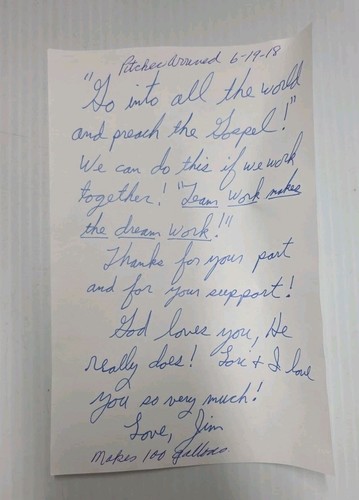 Pitcher Arrived 6-19-18
"Go into all the world
and preach the Gospel!"
We can do this if we work
together! "Team Work makes
the dream Work!"
Thanks for your part
and for your support!
God loves you, He
really does! Lori + I love
you so very much!
Love, Jim
Makes 100 gallons.